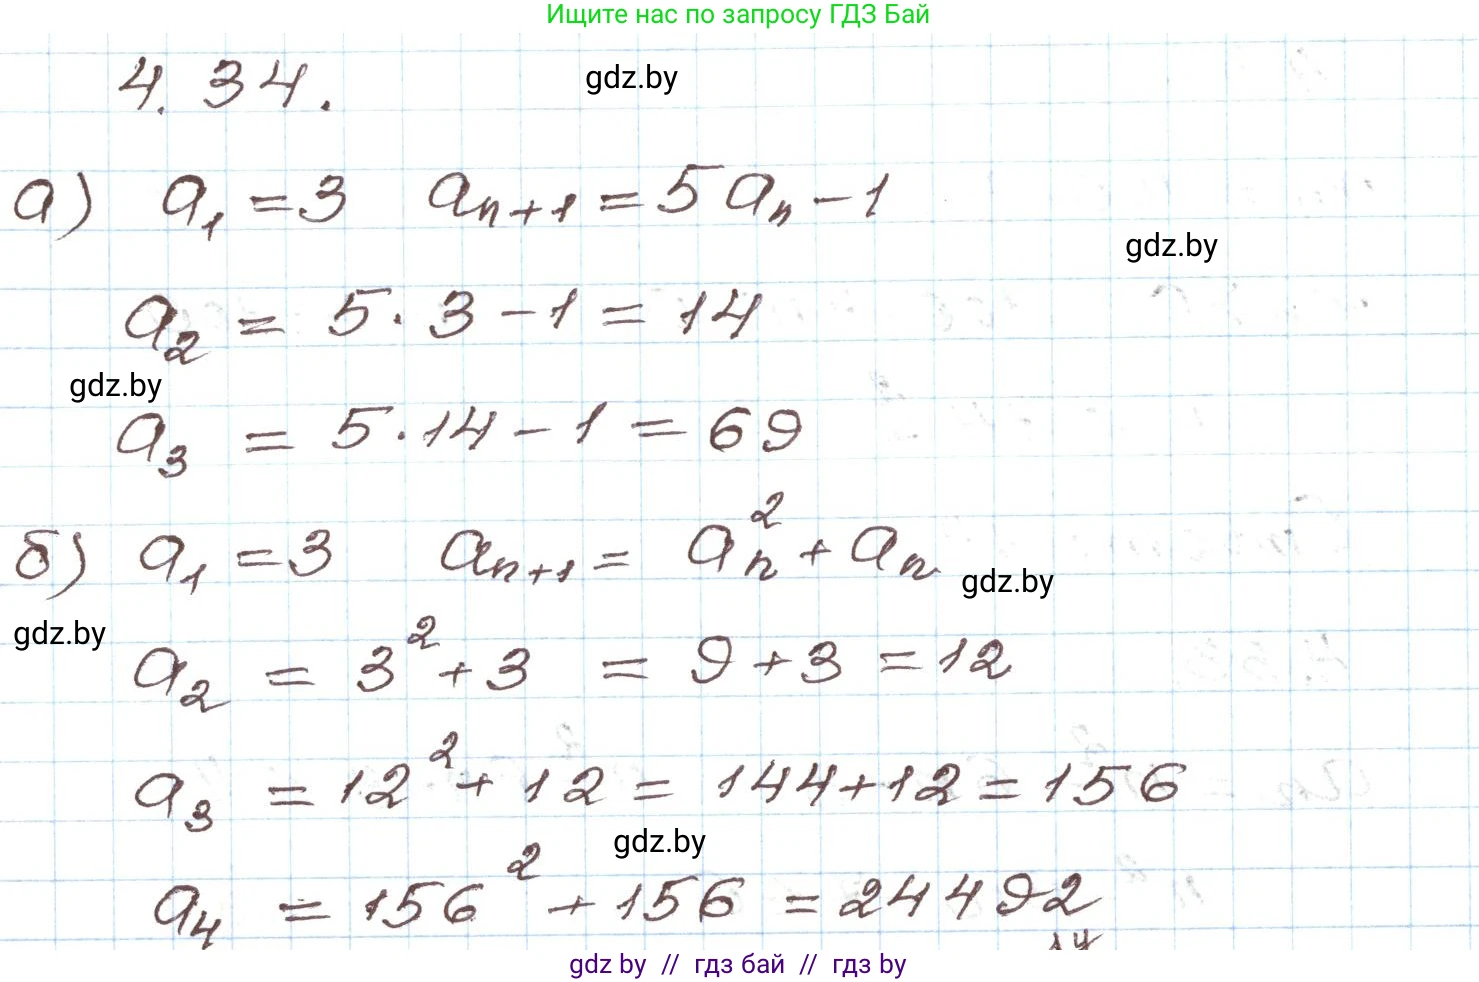 Ищите нас по запросу ГДЗ Бай
4.34.
gdz.by
а) a₁ = 3 aₙ₊₁ = 5aₙ − 1
gdz.by
a₂ = 5 · 3 − 1 = 14
gdz.by
a₃ = 5 · 14 − 1 = 69
б) a₁ = 3 aₙ₊₁ = aₙ² + aₙ
gdz.by
gdz.by
a₂ = 3² + 3 = 9 + 3 = 12
a₃ = 12² + 12 = 144 + 12 = 156
gdz.by
a₄ = 156² + 156 = 24492
gdz by // гдз бай // гдз by